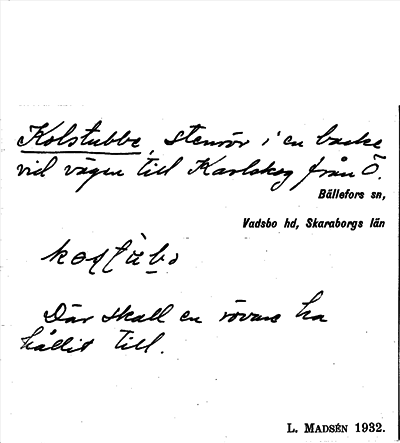 Kolstubbe, stenrör i en backe
vid vägen till Karlskog från Ö.
Bällefors sn,
Vadsbo hd, Skaraborgs län
Där skall en rövare ha
hållit till.
L. MADSÉN 1932.